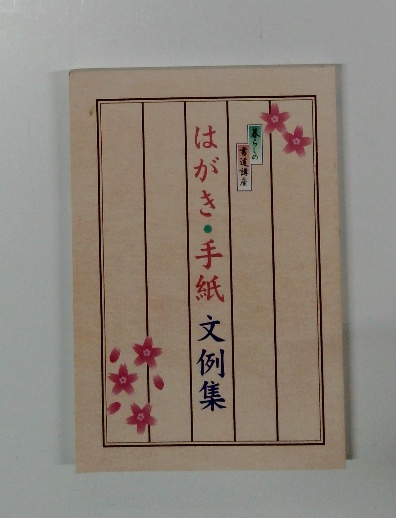 暮らしの
書道講座
はがき・手紙 文例集